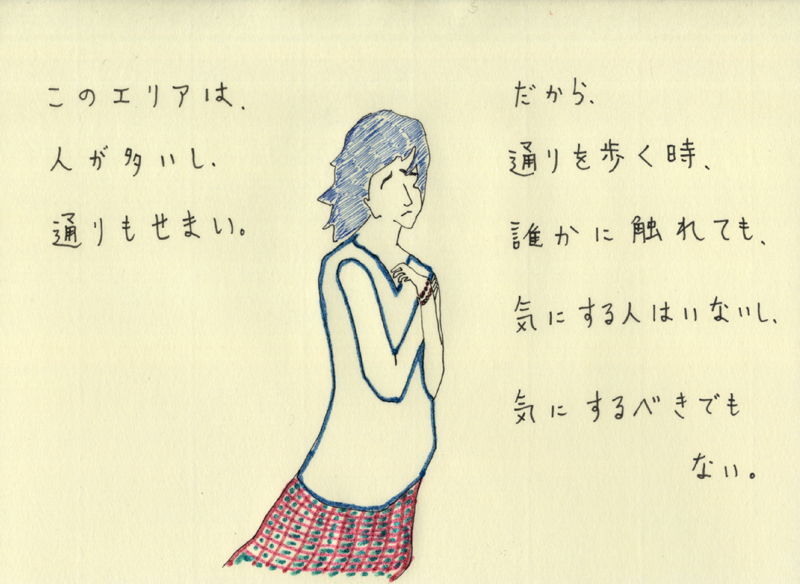 このエリアは、
人が多いし、
通りもせまい。
だから、
通りを歩く時、
誰かに触れても、
気にする人はいないし、
気にするべきでも
ない。